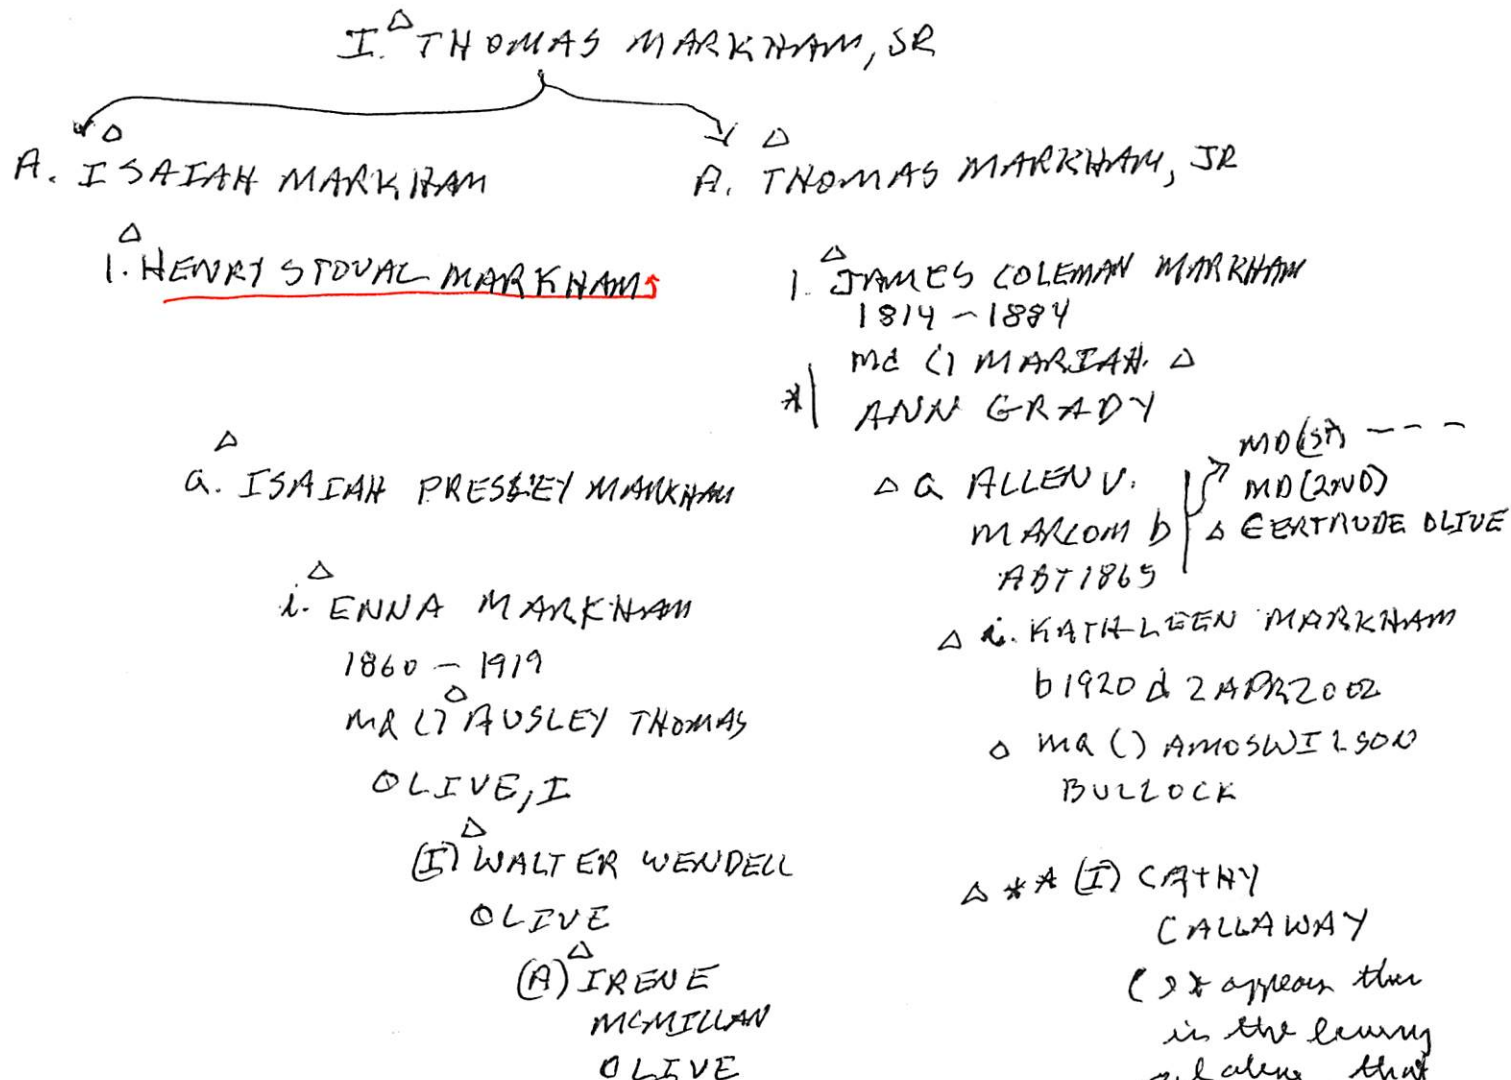 I. THOMAS MARKHAM, SR
A. ISAIAH MARKHAM
1. HENRY STOVAL MARKHAM
a. ISAIAH PRESLEY MARKHAM
i. ENNA MARKHAM
1860 - 1919
md () AUSLEY THOMAS
OLIVE, I
(I) WALTER WENDELL
OLIVE
(A) IRENE
MCMILLAN
OLIVE
A. THOMAS MARKHAM, JR
1. JAMES COLEMAN MARKHAM
1814 - 1884
md () MARIAH
* ANN GRADY
a ALLEN V.
MARCOM b
ABT 1865
MD (1ST) - - -
MD (2ND)
GERTRUDE OLIVE
i. KATHLEEN MARKHAM
b 1920 d 2 APR 2002
md () AMOS WILSON
BULLOCK
** (I) CATHY
CALLAWAY
( appears this
is the living
that